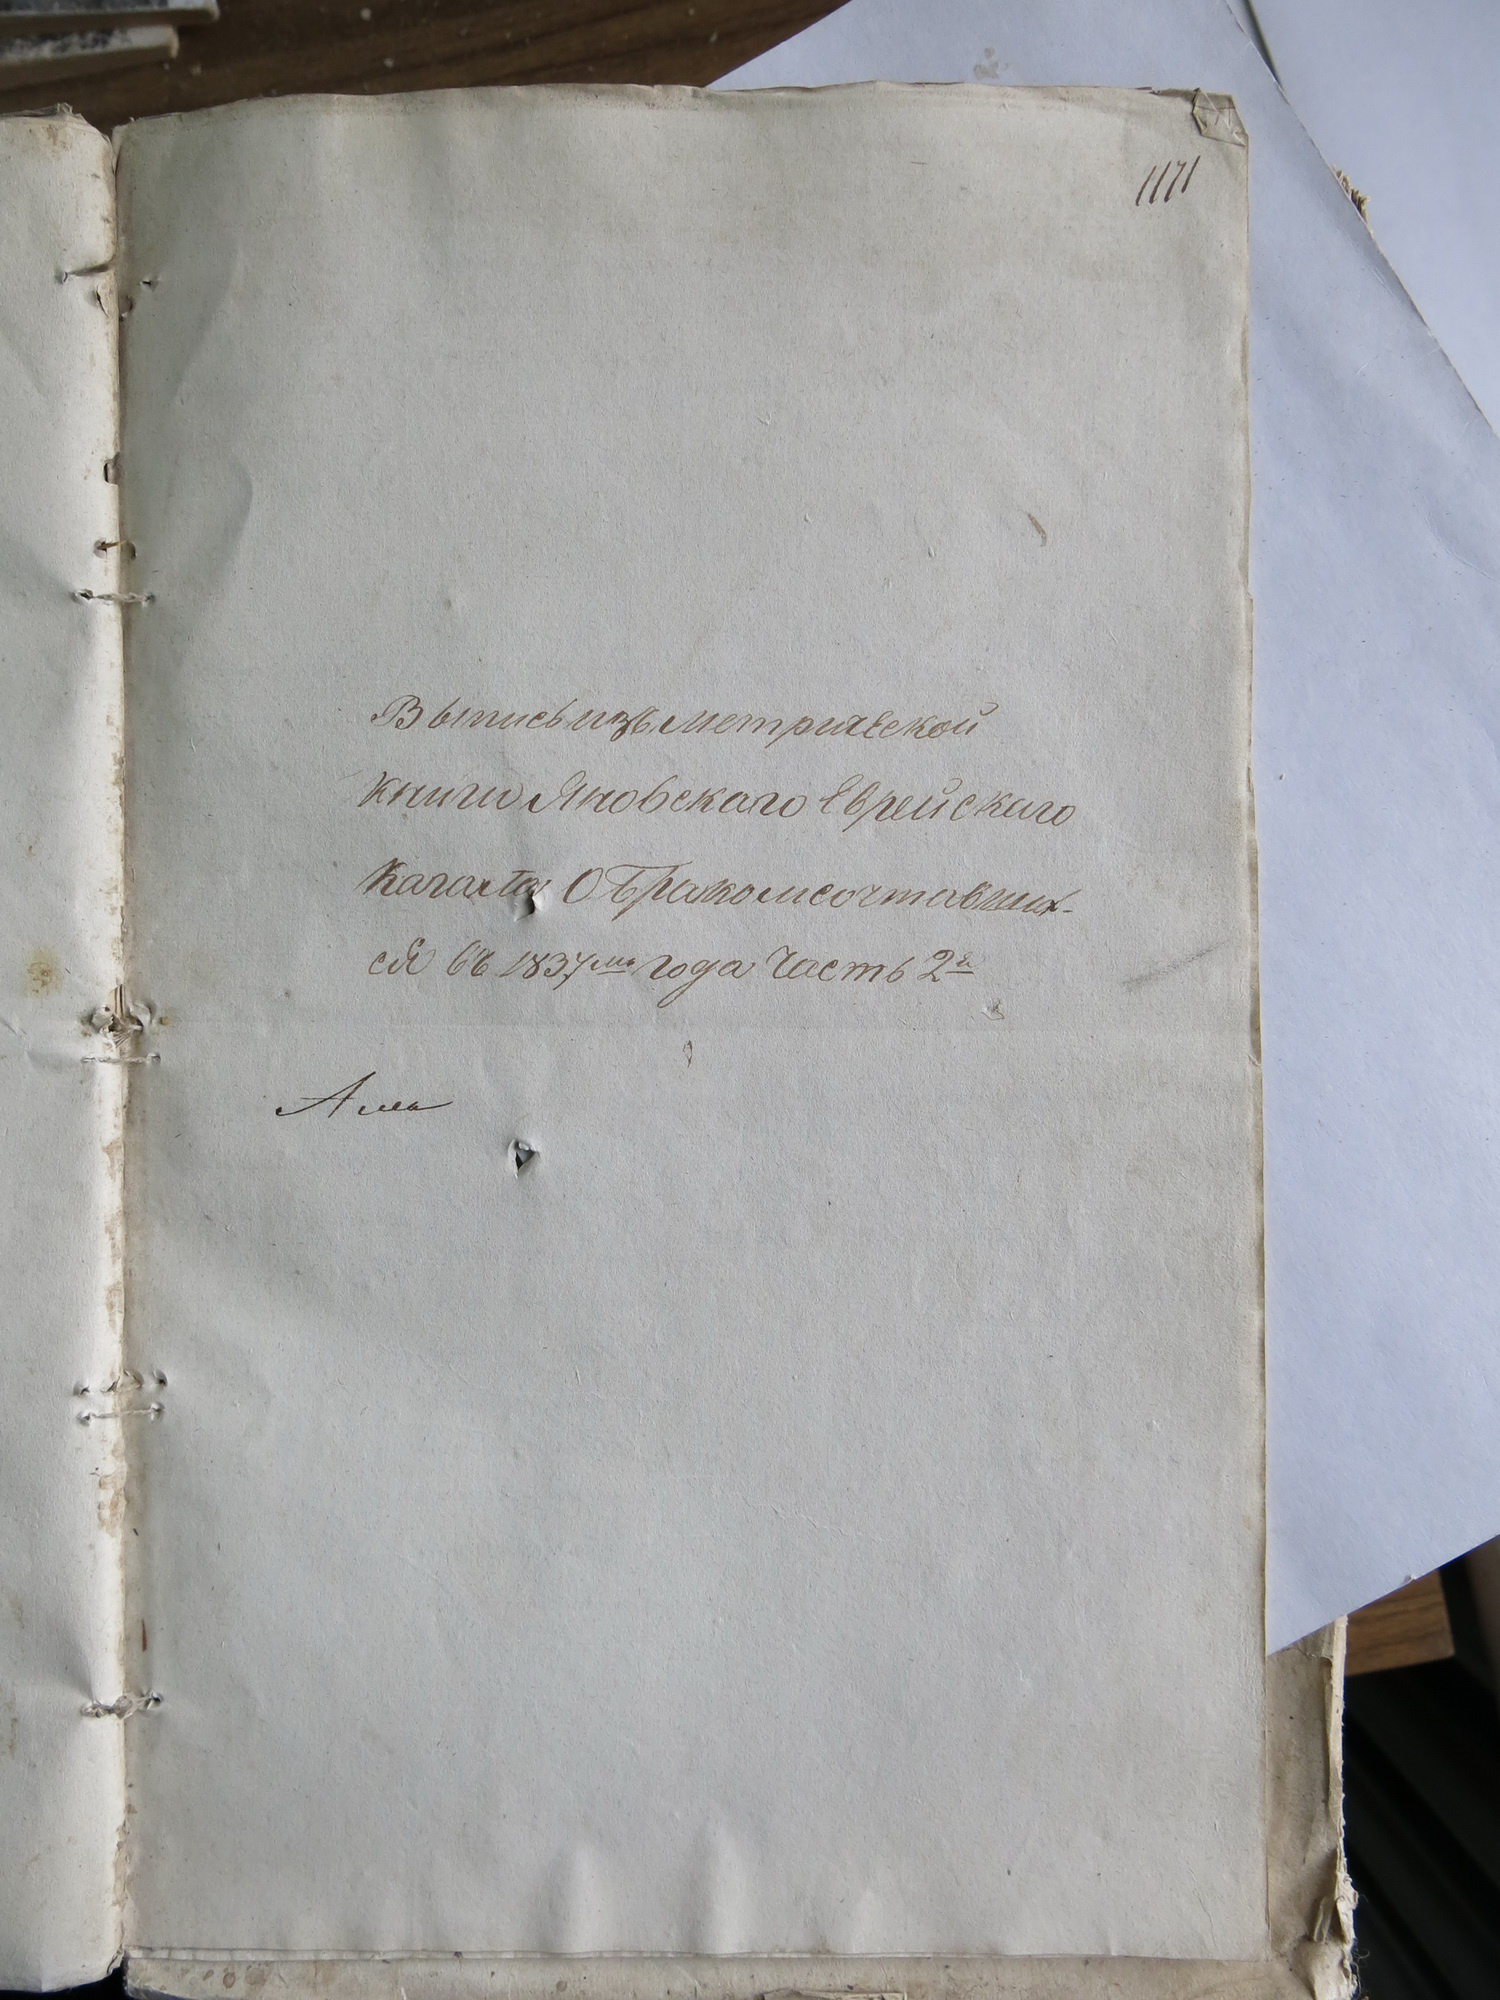 1171
Выпись изъ метрической
книги Яновскаго Еврейскаго
кагала О Бракомсочтавших-
ся въ 1837мъ года Часть 2я